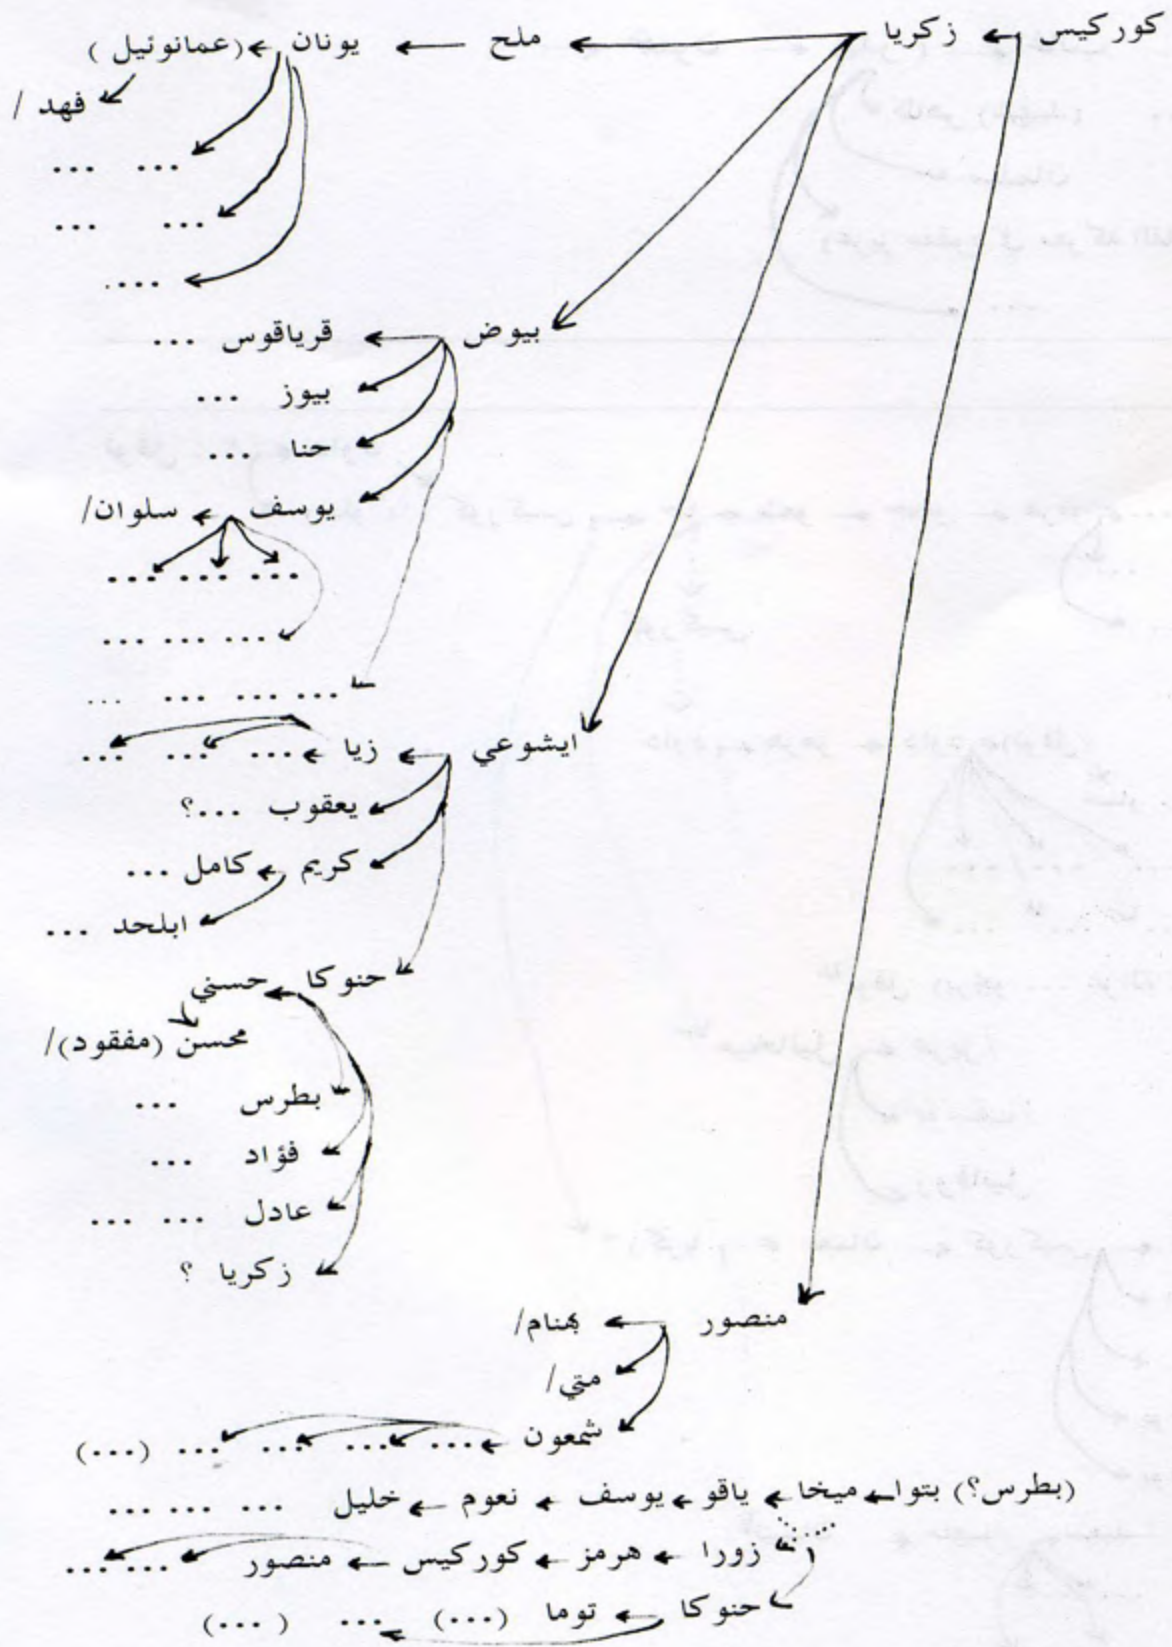 كوركيس ← زكريا ← ملح ← يونان ← (عمانوئيل)
فهد /
... ...
... ...
....
بيوض ← قرياقوس ...
بيوز ...
حنا ...
يوسف ← سلوان/
... ... ...
... ... ...
... ... ... ...
ايشوعي ← زيا ← ... ... ...
يعقوب ...؟
كريم ← كامل ...
ابلحد ...
حنوكا ← حسني
محسن (مفقود)/
بطرس ...
فؤاد ...
عادل ... ...
زكريا ؟
منصور ← بهنام/
متي/
شمعون ← ... ... ... ... (...)
(بطرس؟) بتوا ← ميخا ← ياقو ← يوسف ← نعوم ← خليل ... ... ...
زورا ← هرمز ← كوركيس ← منصور ... ...
حنوكا ← توما (...) ... (...)